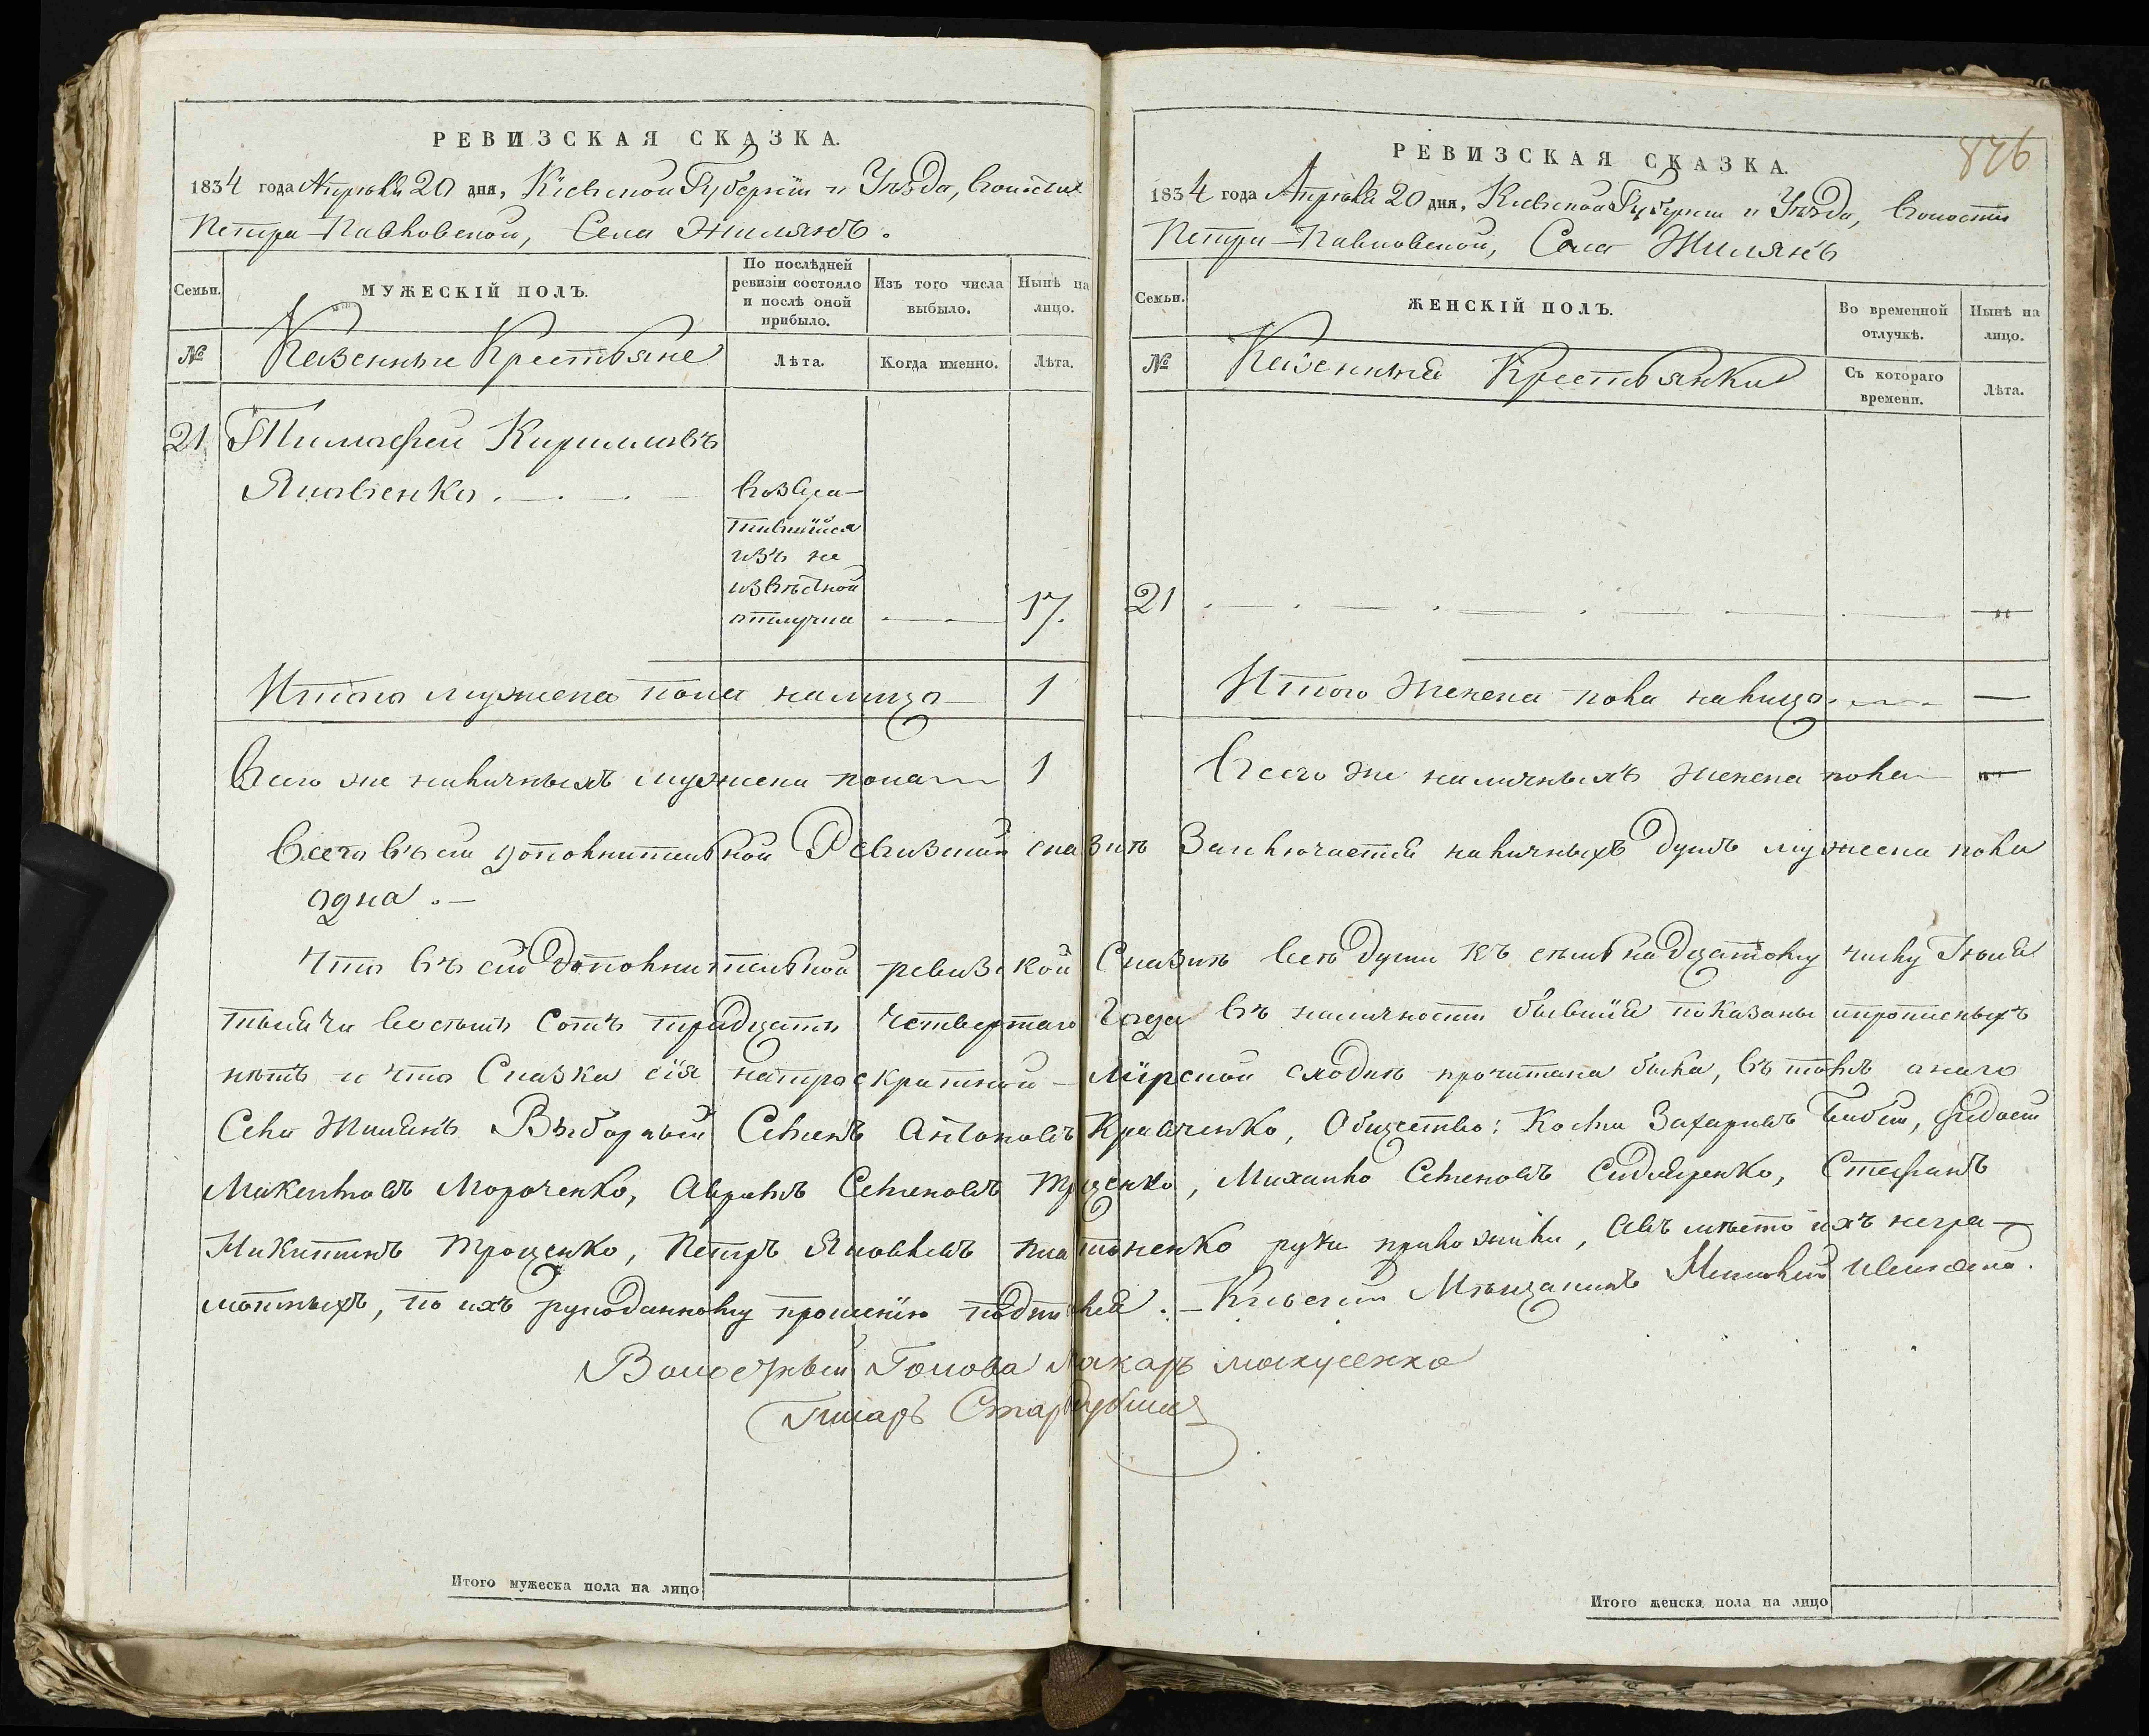 РЕВИЗСКАЯ СКАЗКА.
1834 года Апрѣля 20 дня, Кіевской Губерніи и Уѣзда, Волости
Петро-Павловской, Села Жилянъ.
Семьи.
МУЖЕСКІЙ ПОЛЪ.
По послѣдней ревизіи состояло и послѣ оной прибыло.
Изъ того числа выбыло.
Нынѣ на лицо.
№
Казенные Крестьяне
Лѣта.
Когда именно.
Лѣта.
21 Тимофей Кирилловъ
Яковенко.
Возвра-
тившійся
изъ не
извѣстной
отлучки 17.
Итого мужеска пола налицо 1
Всего же наличныхъ мужеска пола 1
РЕВИЗСКАЯ СКАЗКА.
826
1834 года Апрѣля 20 дня, Кіевской Губерніи и Уѣзда, Волости
Петро-Павловской, Села Жилянъ
Семьи.
ЖЕНСКІЙ ПОЛЪ.
Во временной отлучкѣ.
Нынѣ на лицо.
№
Казенныя Крестьянки
Съ котораго времени.
Лѣта.
21 „
Итого женска пола налицо —
Всего же наличныхъ женска пола „
Всего въ сей дополнительной Ревизской сказкѣ Заключается наличныхъ душъ мужеска пола
одна.
Что въ сей дополнительной ревизской Сказкѣ всѣ души къ семьнадцатому числу
тысячи восемь Сотъ тридцать четвертаго Года въ наличности бывшія показаны и прописныхъ
нѣтъ и что Сказка сія на мірской сходкѣ прочитана была, въ томъ онаго
Села Жилянъ Выборный Семенъ Антоновъ Кравченко, Общество: Захаріевъ
Авраамъ Семеновъ Михайло Семеновъ Стефанъ
Микитинъ Троценко, Петръ Яковлевъ руки приложили, а въ мѣсто ихъ негра-
мотныхъ, по ихъ рукоданному прошенію Кіевскій Мѣщанинъ
Волостный Голова Макаръ
Писарь
Итого мужеска пола на лицо
Итого женска пола на лицо